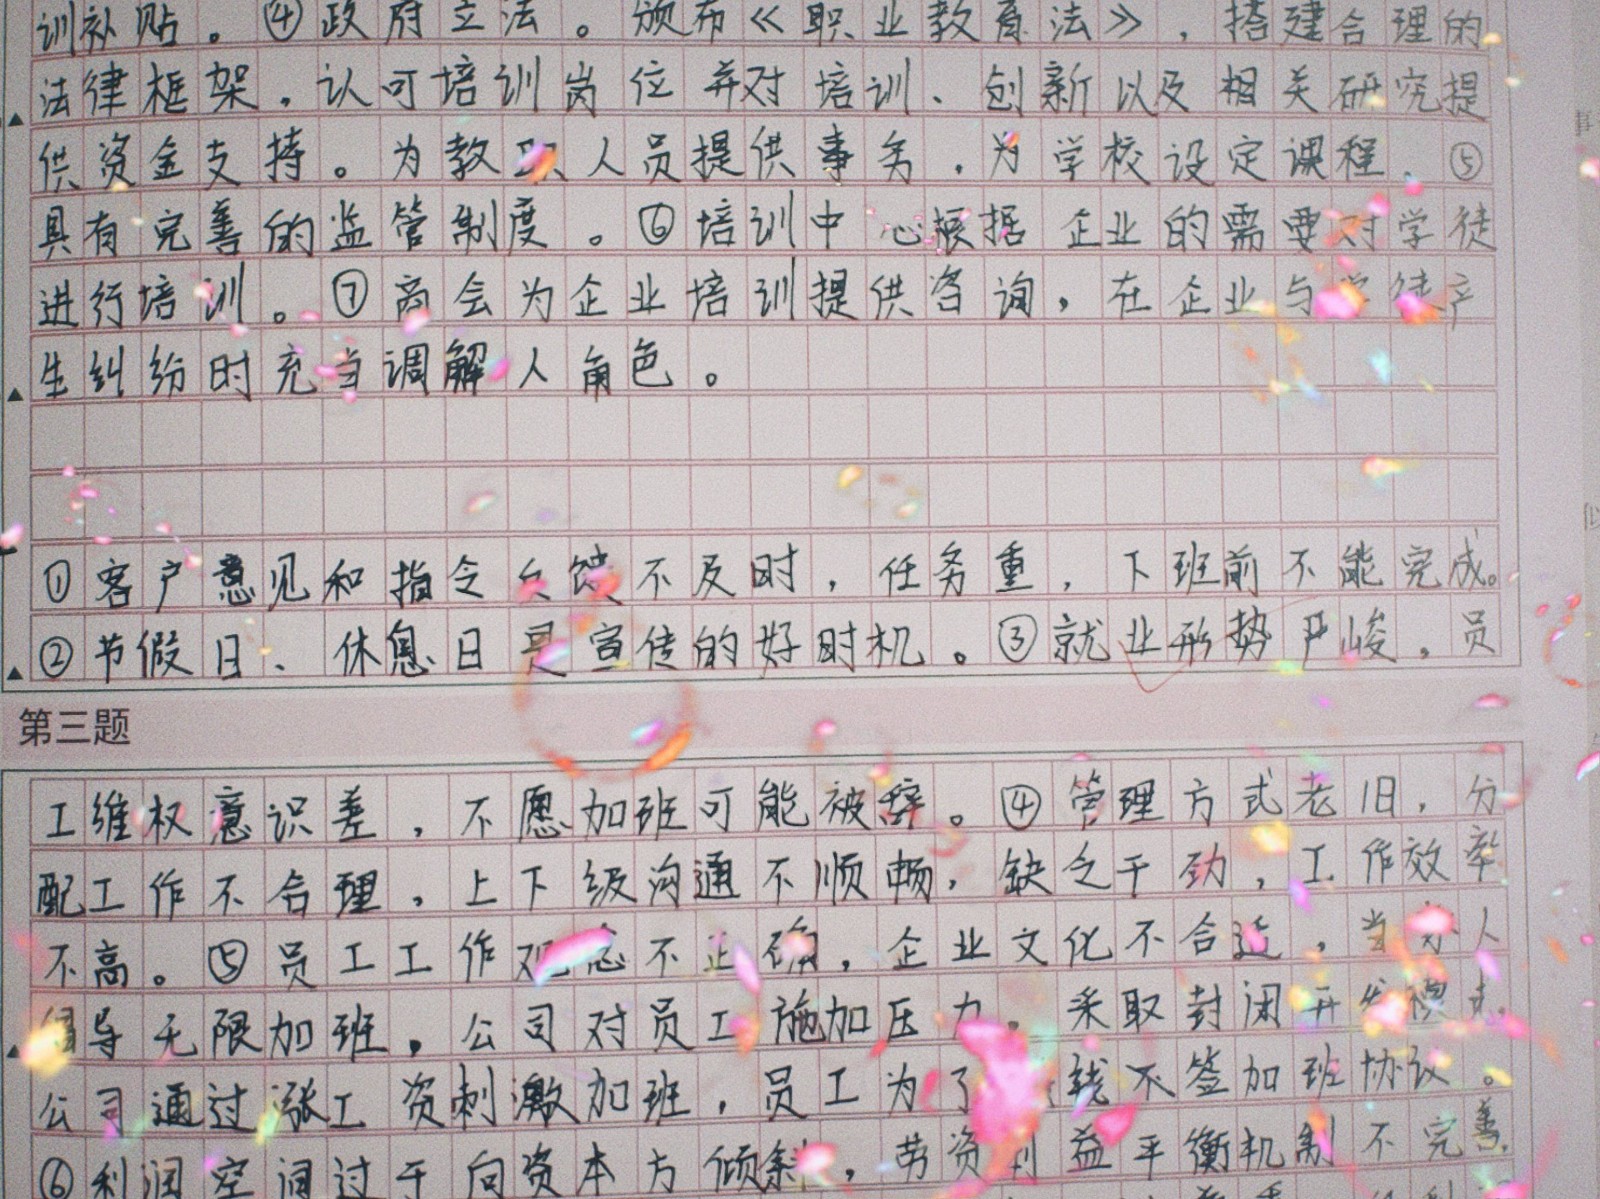 训补贴。④政府立法。颁布《职业教育法》，搭建合理的
法律框架，认可培训岗位并对培训、创新以及相关研究提
供资金支持。为教职人员提供事务，为学校设定课程。⑤
具有完善的监管制度。⑥培训中心根据企业的需要对学徒
进行培训。⑦商会为企业培训提供咨询，在企业与学徒产
生纠纷时充当调解人角色。
①客户意见和指令反馈不及时，任务重，下班前不能完成。
②节假日、休息日是宣传的好时机。③就业形势严峻，员
第三题
工维权意识差，不愿加班可能被辞。④管理方式老旧，分
配工作不合理，上下级沟通不顺畅，缺乏干劲，工作效率
不高。⑤员工工作观念不正确，企业文化不合适，当 人
倡导无限加班，公司对员工施加压力，采取封闭开发模式，
公司通过涨工资刺激加班，员工为了 钱不签加班协议。
⑥利润空间过于向资本方倾斜，劳资利益平衡机制不完善，